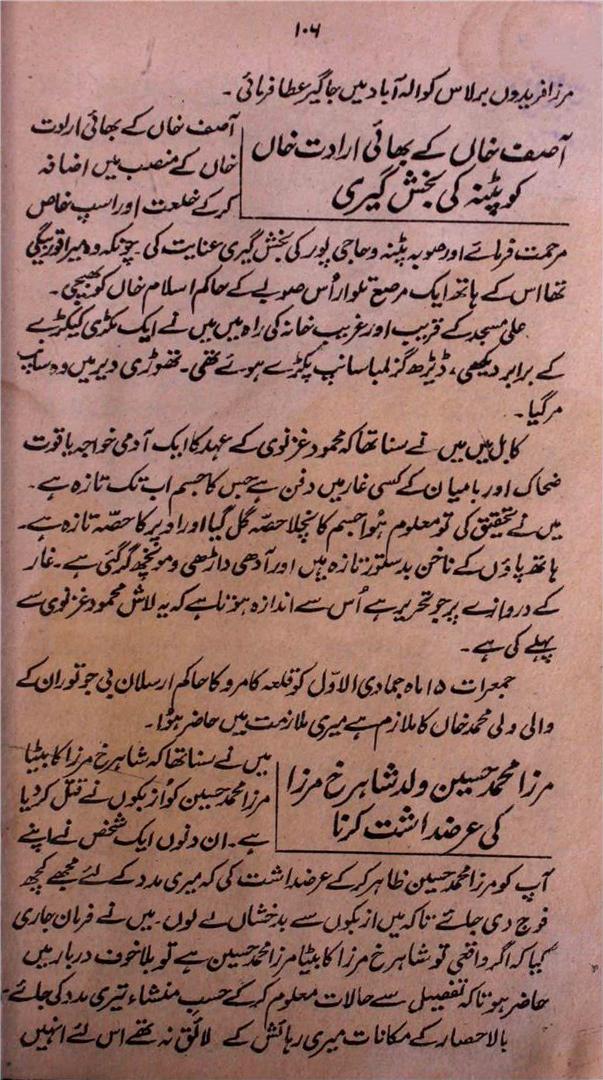 ۱۰۶
مرزا فریدوں برلاس کو الہ آباد میں جاگیر عطا فرمائی۔
آصف خاں کے بھائی ارادت خاں
کو پٹنہ کی بخش گیری
آصف خاں کے بھائی ارادت
خاں کے منصب میں اضافہ
کر کے خلعت اور اسپ خاص
مرحمت فرمائے اور صوبہ پٹنہ و حاجی پور کی بخش گیری عنایت کی۔ چونکہ وہ میرا قوربیگی
تھا اس کے ہاتھ ایک مرصع تلوار اُس صوبے کے حاکم اسلام خاں کو بھیجی۔
علی مسجد کے قریب اور غریب خانہ کی راہ میں میں نے ایک مکڑی کیکڑے
کے برابر دیکھی، ڈیڑھ گز لمبا سانپ پکڑے ہوئے تھی۔ تھوڑی دیر میں وہ سانپ
مر گیا۔
کابل میں میں نے سنا تھا کہ محمود غزنوی کے عہد کا ایک آدمی خواجہ یاقوت
ضحاک اور بامیان کے کسی غار میں دفن ہے جس کا جسم اب تک تازہ ہے۔
میں نے تحقیق کی تو معلوم ہُوا جسم کا نچلا حصّہ گل گیا اور اوپر کا حصّہ تازہ ہے۔
ہاتھ پاؤں کے ناخن بدستور تازہ ہیں اور آدھی داڑھی و مونچھ گر گئی ہے۔ غار
کے دروازے پر جو تحریر ہے اُس سے اندازہ ہوتا ہے کہ یہ لاش محمود غزنوی سے
پہلے کی ہے۔
جمعرات ۱۵ ماہ جمادی الاوّل کو قلعہ کامرو کا حاکم ارسلان بی جو توران کے
والی ولی محمد خاں کا ملازم ہے میری ملازمت میں حاضر ہُوا۔
مرزا محمد حسین ولد شاہرخ مرزا
کی عرضداشت کرنا
میں نے سنا تھا کہ شاہرخ مرزا کا بیٹا
مرزا محمد حسین کو ازبکوں نے قتل کر دیا
ہے۔ ان دنوں ایک شخص نے اپنے
آپ کو مرزا محمد حسین ظاہر کر کے عرضداشت کی کہ میری مدد کے لئے مجھے کچھ
فوج دی جائے تاکہ میں ازبکوں سے بدخشاں لے لوں۔ میں نے فرمان جاری
کیا کہ اگر واقعی تو شاہرخ مرزا کا بیٹا مرزا محمد حسین ہے تو بلا خوف دربار میں
حاضر ہو تاکہ تفصیل سے حالات معلوم کر کے حسب منشاء تیری مدد کی جائے۔
بالا حصار کے مکانات میری رہائش کے لائق نہ تھے اس لئے انہیں